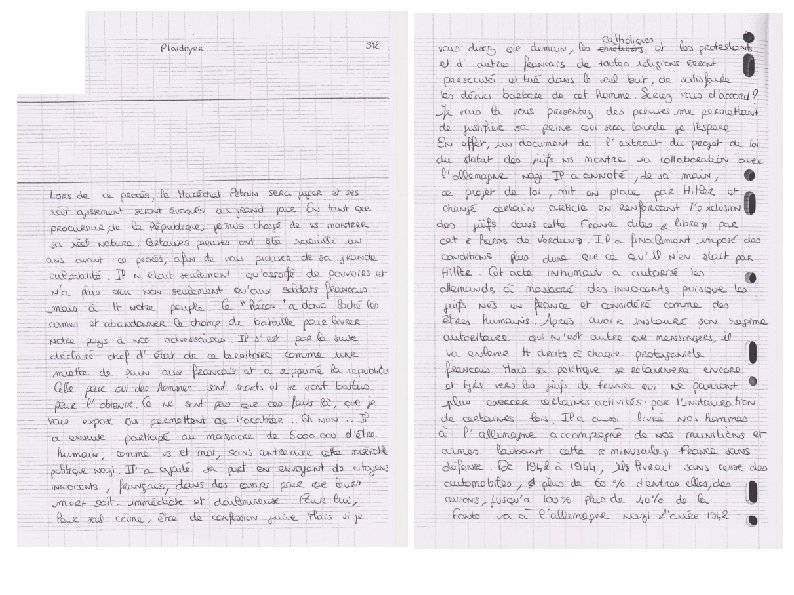 Plaidoyer
312
Lors de ce procès, le Maréchal Pétain sera juger et ses
réel agissement seront évoqués au grand jour. En tant que
procureur de la République, je suis chargé de vs montrer
sa réel nature. Certaines preuves ont été recueillie un
ans avant ce procès, afin de vous prouver de sa grande
culpabilité. Il n'était seulement qu'assoiffé de pouvoirs et
n'a plus non seulement qu'aux soldats français
mais à tt notre peuple. Ce "Héros" a donc laché les
armes et abandonner le champ de bataille pour livrer
notre pays à nos adversaires. Il s'est par la suite
déclaré chef d'état de ce territoire comme une
miette de pain aux français et a supprimé la république
Celle pour qui des hommes sont morts et se sont battus
pour l'obtenir. Ce ne sont pas que ces faits là, que je
vous expose qui permettent de l'accabler.. Eh non... Il
a ensuite participé au massacre de 5000 ans d'être
humain, comme vs et moi, sans antisémite cette misérable
politique nazi. Il a ajouté sa part en envoyant des citoyens
innocents, français, dans des camps pour que leur
mort soit immédiate et douloureuse. Pour lui,
leur seul crime, être de confession juive. Mais si je
vous disais que demain, les catholiques et les protestants
et d'autres français de toutes religions seront
persécuté et tué dans le seul but, de satisfaire
les désirs barbare de cet homme. Serez vous d'accord?
Je vais là vous présentez des preuves me permettant
de justifier sa peine qui sera lourde je l'espère
En effet, un document de l'extrait du projet de loi
du statut des juifs ns montre sa collaboration avec
l'allemagne nazi Il a annoté, de sa main,
ce projet de loi, mit en place par Hitler et
changé certain article en renforçant l'exclusion
des juifs dans cette France dites «libre» par
cet «héros de Verdun». Il a finalement imposé des
conditions plus dure que ce qu'il n'en était par
Hitler. Cet acte inhumain a autorisé les
allemands à massacré des innocents puisque les
juifs nés en france et considéré comme des
êtres humains. Après avoir instaurer son régime
autoritaire qui n'est autre que mensonges, il
va enlever tt droits à chaque protagoniste
français Mais sa politique se retournera encore
et tjrs vers les juifs de france qui ne pouront
plus exercer certaines activités par l'instauration
de certaines lois. Il a aussi livré nos hommes
à l'allemagne accompagné de nos munitions et
armes laissant cette «minuscule» France sans
défense De 1942 à 1944, ils livrait sans cesse des
automobiles, plus de 60 % d'entres elles, des
avions, jusqu'à 100% plus de 40% de la
fonte va à l'allemagne nazi l'année 1942